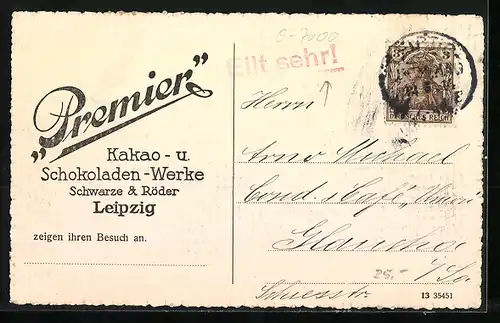 0-7000
Eilt sehr!
„Premier"
Kakao - u.
Schokoladen-Werke
Schwarze & Röder
Leipzig
zeigen ihren Besuch an.
3
DEUTSCHES REICH
Herrn
Arno Michael
Cond. u. Café
Glauchau
i/Sa.
25,-
13 35451